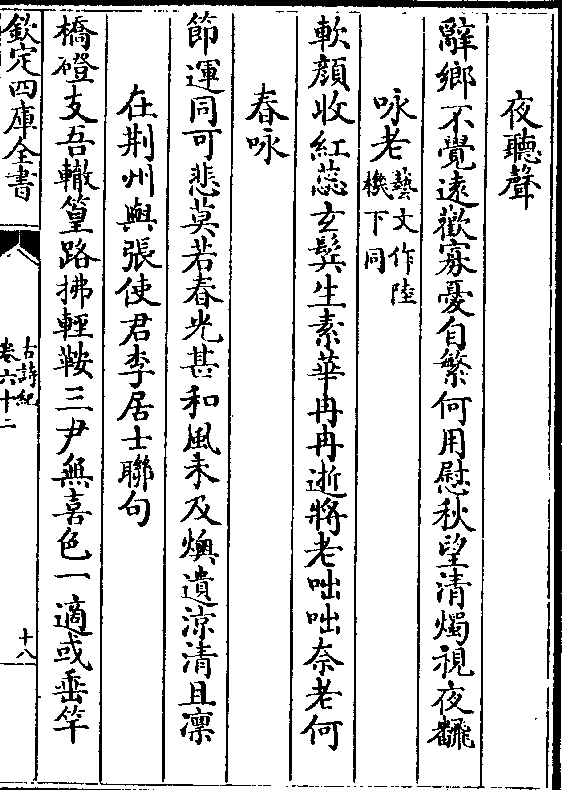 夜聽聲
辭鄉不覺遠歡寡憂自繁何用慰秋望清燭視夜飜
咏老藝文作陸
機下同
軟顔收紅蕊玄鬂生素華冉冉逝將老咄咄奈老何
春咏
節運同可悲莫若春光甚和風未及燠遺涼清且凛
在荆州與張使君李居士聯句
橋磴支吾轍篁路拂輕鞍三尹無喜色一適或垂竿
欽定四庫全書
古詩紀
卷六十二
十八